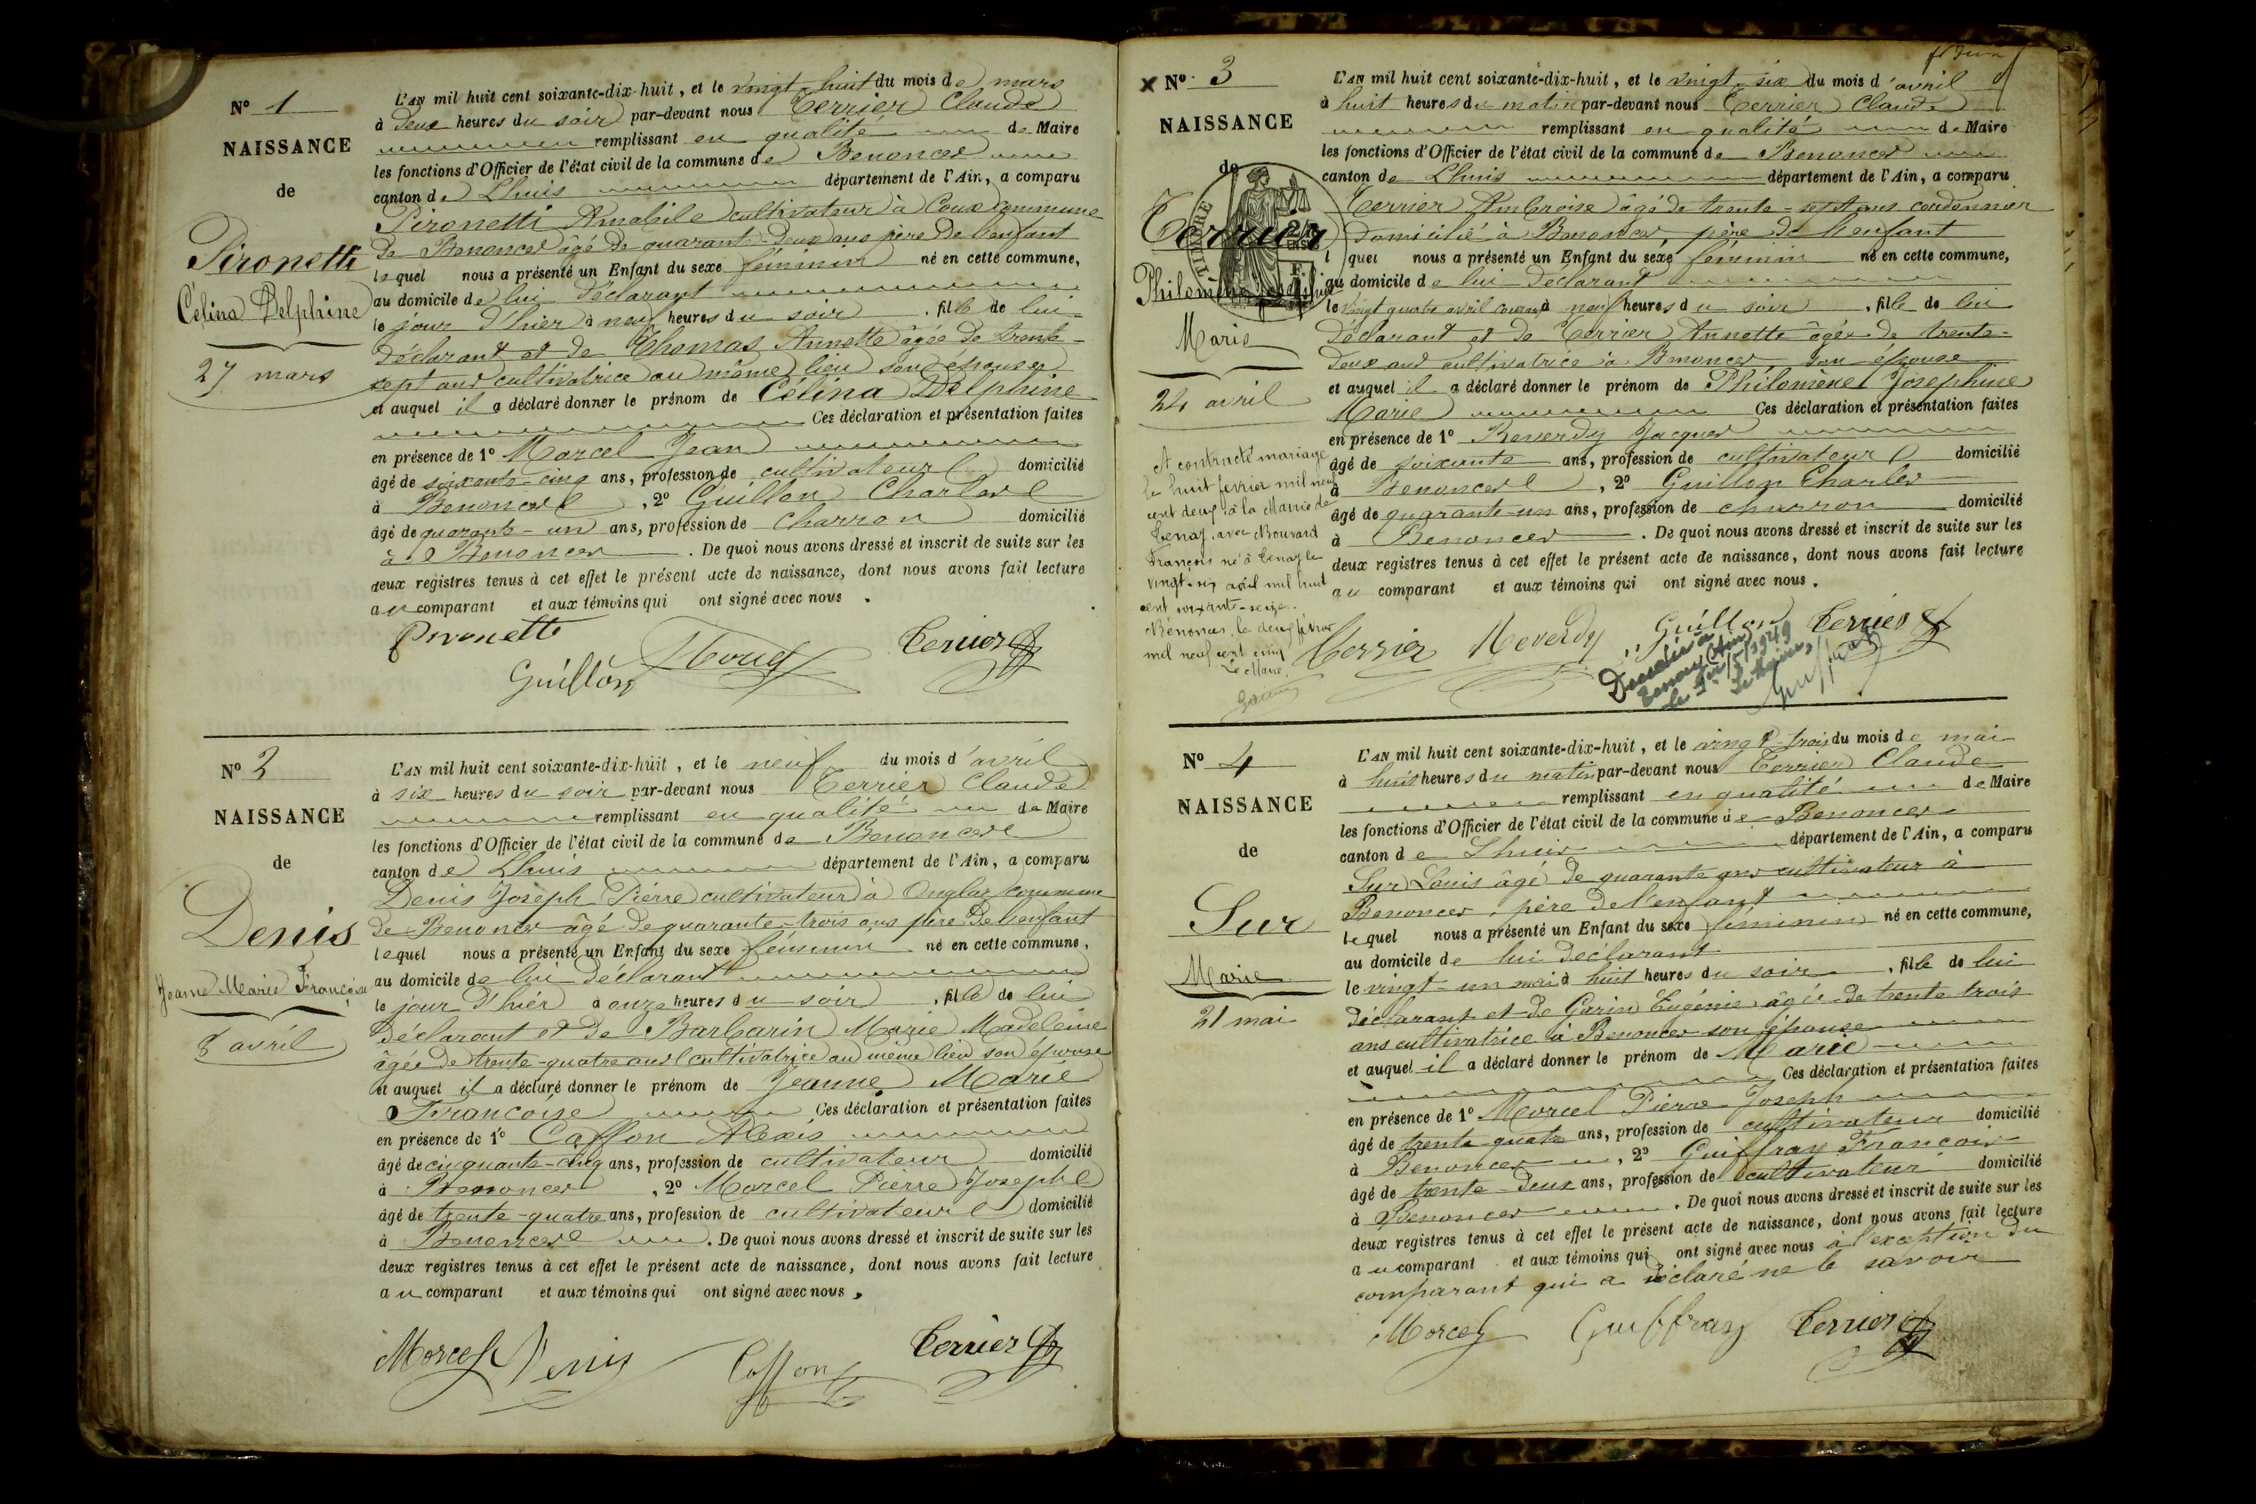 N° 1
NAISSANCE
de
Pironetti
Célina Delphine
27 mars
L'AN mil huit cent soixante-dix-huit, et le vingt-huit du mois de mars
à deux heures du soir par-devant nous Terrier Claude
remplissant en qualité de Maire
les fonctions d'Officier de l'état civil de la commune de Benonces
canton de Lhuis département de l'Ain, a comparu
Pironetti Amabile cultivateur à Coux commune
de Benonces âgé de quarante-deux ans père de l'enfant
lequel nous a présenté un Enfant du sexe féminin né en cette commune,
au domicile de lui déclarant
le jour d'hier à neuf heures du soir, fille de lui
déclarant et de Thomas Annette âgée de trente-
sept ans cultivatrice au même lieu son épouse
et auquel il a déclaré donner le prénom de Célina Delphine
Ces déclaration et présentation faites
en présence de 1° Marcel Jean
âgé de soixante-cinq ans, profession de cultivateur domicilié
à Benonces, 2° Guillon Charles
âgé de quarante-un ans, profession de charron domicilié
à Benonces. De quoi nous avons dressé et inscrit de suite sur les
deux registres tenus à cet effet le présent acte de naissance, dont nous avons fait lecture
au comparant et aux témoins qui ont signé avec nous.
Pironetti
Guillon Terrier
N° 2
NAISSANCE
de
Denis
Jeanne Marie Françoise
8 avril
L'AN mil huit cent soixante-dix-huit, et le neuf du mois d'avril
à six heures du soir par-devant nous Terrier Claude
remplissant en qualité de Maire
les fonctions d'Officier de l'état civil de la commune de Benonces
canton de Lhuis département de l'Ain, a comparu
Denis Joseph Pierre cultivateur à Onglas commune
de Benonces âgé de quarante-trois ans père de l'enfant
lequel nous a présenté un Enfant du sexe féminin né en cette commune,
au domicile de lui déclarant
le jour d'hier à onze heures du soir, fille de lui
déclarant et de Barbarin Marie Madeleine
âgée de trente-quatre ans cultivatrice au même lieu son épouse
et auquel il a déclaré donner le prénom de Jeanne Marie
Françoise Ces déclaration et présentation faites
en présence de 1° Caffon Alexis
âgé de cinquante-cinq ans, profession de cultivateur domicilié
à Benonces, 2° Marcel Pierre Joseph
âgé de trente-quatre ans, profession de cultivateur domicilié
à Benonces. De quoi nous avons dressé et inscrit de suite sur les
deux registres tenus à cet effet le présent acte de naissance, dont nous avons fait lecture
au comparant et aux témoins qui ont signé avec nous,
Morcel Denis Caffon Terrier
x N° 3
NAISSANCE
de
Terrier
Philomène
Marie
24 avril
A contracté mariage
le huit février mil neuf
cent deux à la Mairie de
Tenay, avec Bouvard
François né à Tenay le
vingt-six avril mil huit
cent soixante-seize.
Bénonces, le deux février
mil neuf cent cinq
Le Maire,
L'AN mil huit cent soixante-dix-huit, et le vingt-six du mois d'avril
à huit heures du matin par-devant nous Terrier Claude
remplissant en qualité de Maire
les fonctions d'Officier de l'état civil de la commune de Benonces
canton de Lhuis département de l'Ain, a comparu
Terrier Ambroise âgé de trente-sept ans cordonnier
domicilié à Benonces, père de l'enfant
lquel nous a présenté un Enfant du sexe féminin né en cette commune,
au domicile de lui déclarant
le vingt quatre avril courant à neuf heures du soir, fille de lui
déclarant et de Terrier Annette âgée de trente-
deux ans cultivatrice à Benonces son épouse
et auquel il a déclaré donner le prénom de Philomène Josephine
Marie Ces déclaration et présentation faites
en présence de 1° Reverdy Jacques
âgé de soixante ans, profession de cultivateur domicilié
à Benonces, 2° Guillon Charles
âgé de quarante-un ans, profession de charron domicilié
à Benonces. De quoi nous avons dressé et inscrit de suite sur les
deux registres tenus à cet effet le présent acte de naissance, dont nous avons fait lecture
au comparant et aux témoins qui ont signé avec nous.
Terrier Reverdy Guillon Terrier
Décédée à
Tenay (Ain)
Le Maire,
N° 4
NAISSANCE
de
Sur
Marie
21 mai
L'AN mil huit cent soixante-dix-huit, et le vingt-trois du mois de mai
à huit heures du matin par-devant nous Terrier Claude
remplissant en qualité de Maire
les fonctions d'Officier de l'état civil de la commune de Benonces
canton de Lhuis département de l'Ain, a comparu
Sur Louis âgé de quarante ans cultivateur à
Benonces, père de l'enfant
lequel nous a présenté un Enfant du sexe féminin né en cette commune,
au domicile de lui déclarant
le vingt-un mai à huit heures du soir, fille de lui
déclarant et de Garin Eugénie âgée de trente trois
ans cultivatrice à Benonces son épouse
et auquel il a déclaré donner le prénom de Marie
Ces déclaration et présentation faites
en présence de 1° Morcel Pierre Joseph
âgé de trente quatre ans, profession de cultivateur domicilié
à Benonces, 2° Guiffray François
âgé de trente-deux ans, profession de cultivateur domicilié
à Benonces. De quoi nous avons dressé et inscrit de suite sur les
deux registres tenus à cet effet le présent acte de naissance, dont nous avons fait lecture
au comparant et aux témoins qui ont signé avec nous à l'exception du
comparant qui a déclaré ne le savoir
Morcel Guiffray Terrier